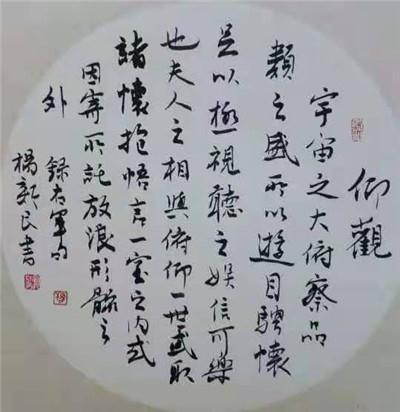 仰觀
宇宙之大俯察品
類之盛所以遊目騁懷
足以極視聽之娛信可樂
也夫人之相與俯仰一世或取
諸懷抱悟言一室之內或
因寄所託放浪形骸之
外
錄右軍句
楊新民書